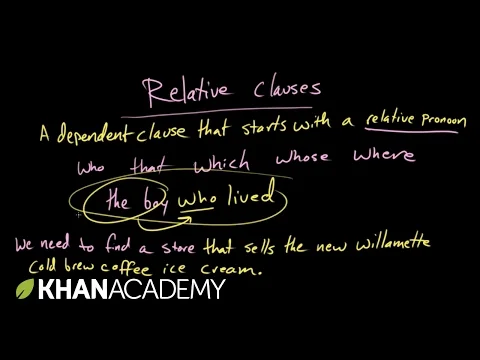 Relative Clauses
A dependent clause that starts with a relative pronoun
who that which whose where
the boy who lived
We need to find a store that sells the new willamette
cold brew coffee ice cream.
KHANACADEMY